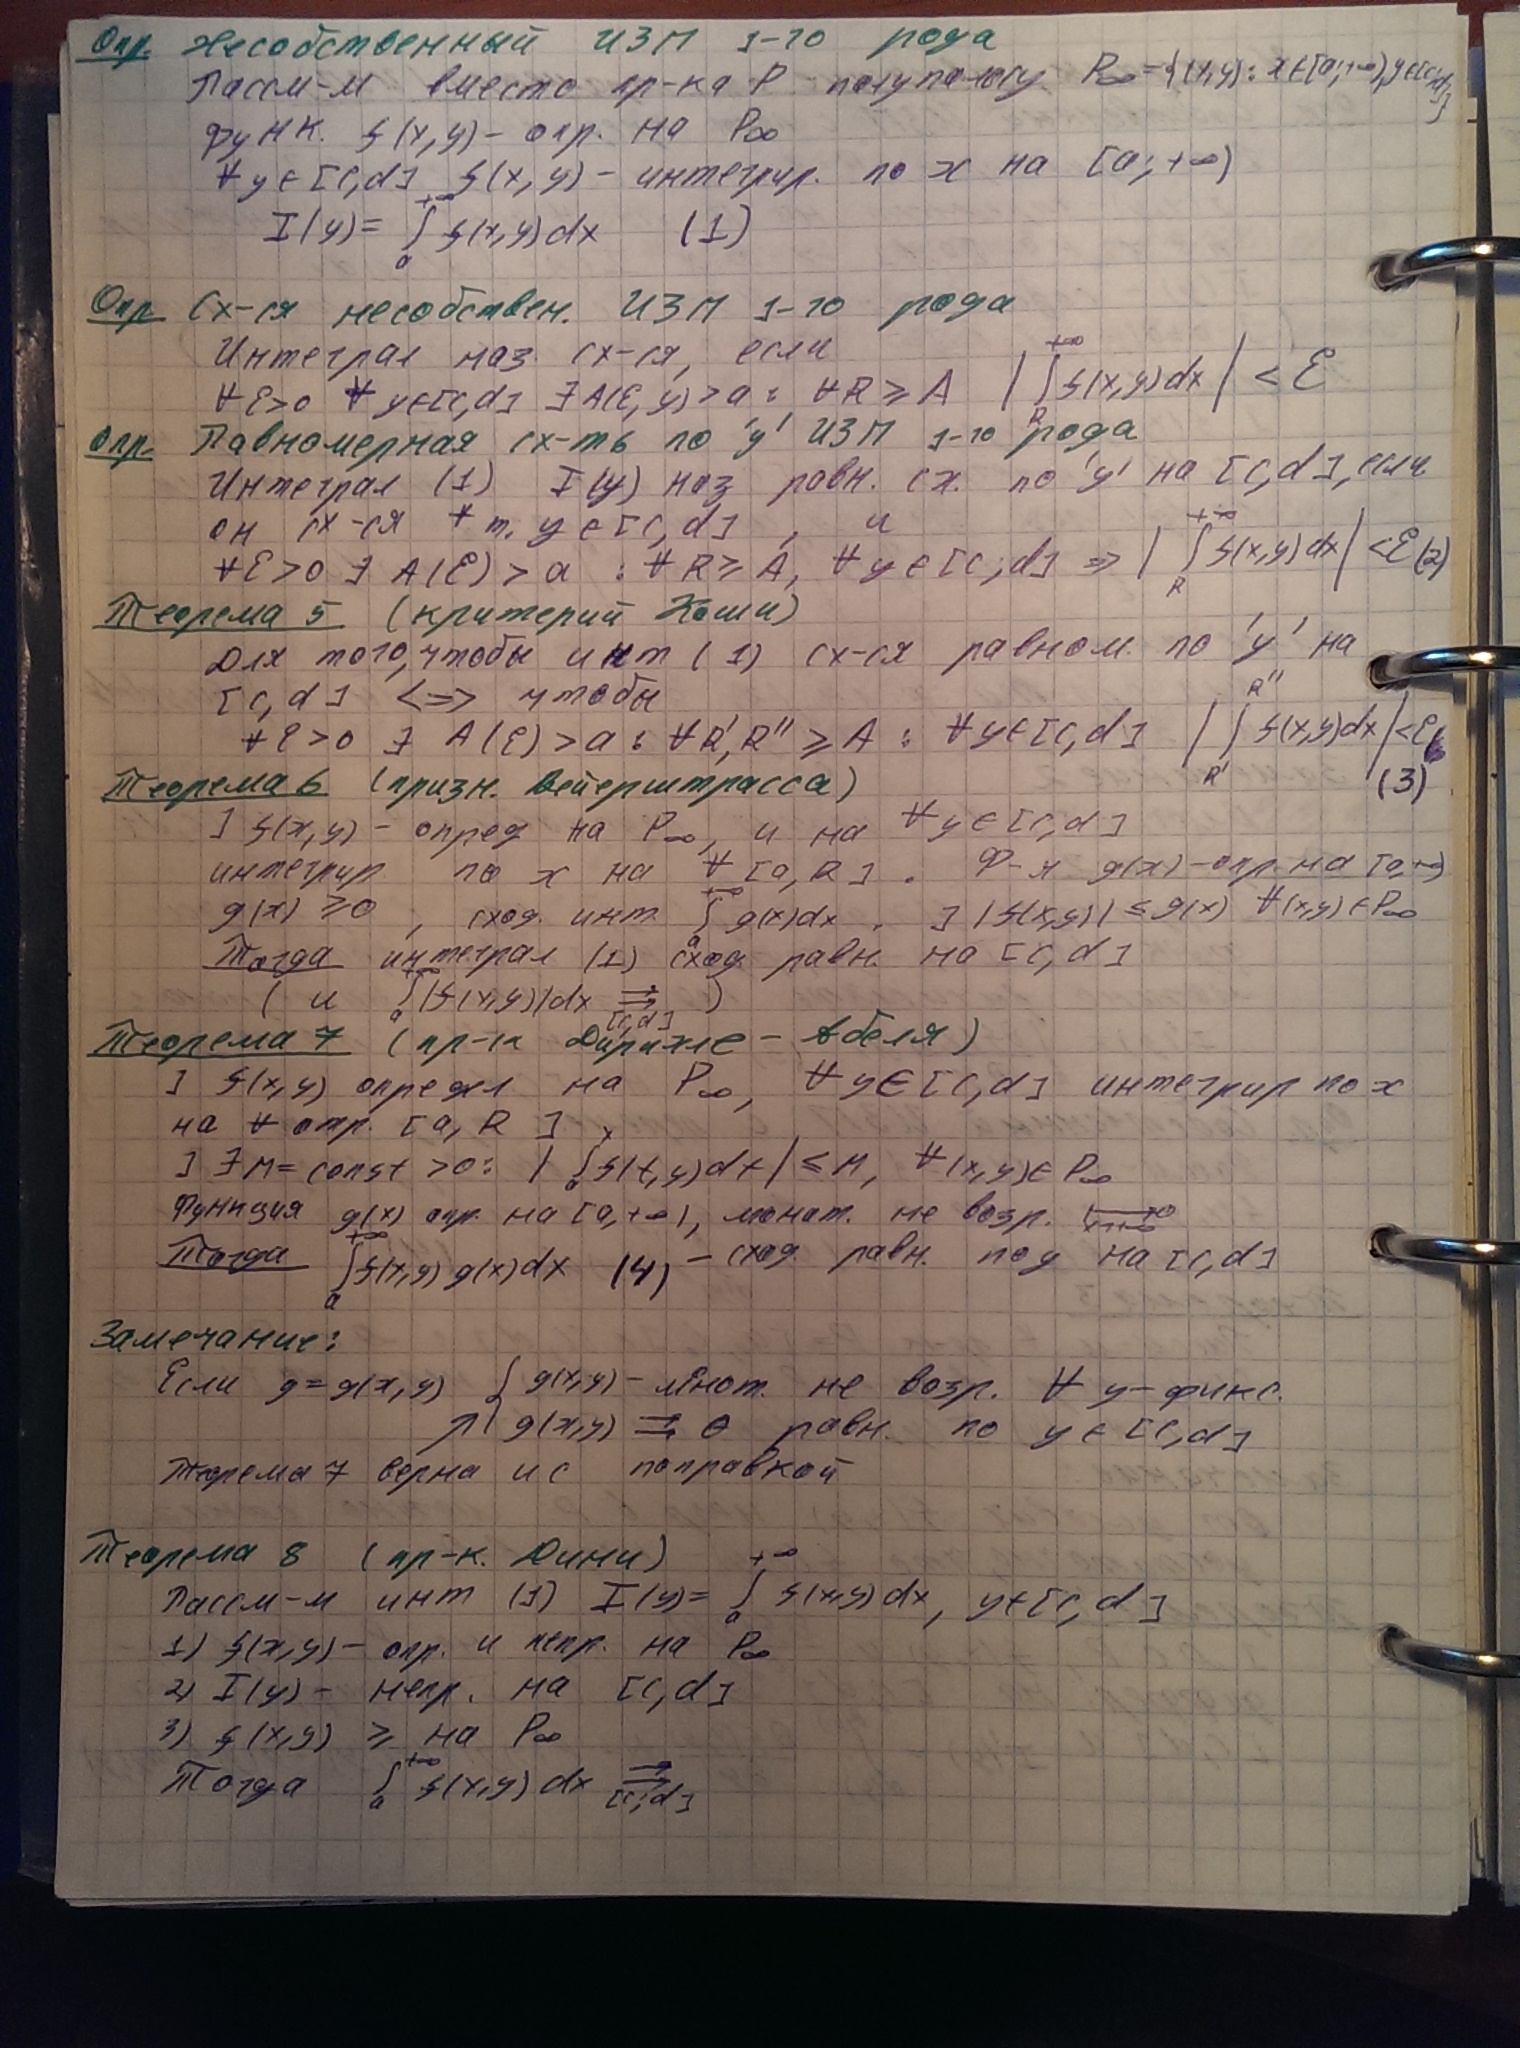 Опр. Несобственный ИЗП 1-го рода
Рассм-м вместо пр-ка P полуполосу P∞={(x,y): x∈[a;+∞), y∈[c,d]}
функ. f(x,y) – опр. на P∞
∀y∈[c,d] f(x,y) – интегрир. по x на [a;+∞)
I(y)= ∫ₐ^{+∞} f(x,y)dx (1)
Опр. Сх-ся несобствен. ИЗП 1-го рода
Интеграл наз. сх-ся, если
∀ε>0 ∀y∈[c,d] ∃A(ε,y)>a: ∀R≥A |∫_R^{+∞} f(x,y)dx| < ε
Опр. Равномерная сх-ть по 'y' ИЗП 1-го рода
Интеграл (1) I(y) наз равн. сх. по 'y' на [c,d], если
он сх-ся ∀ т. y∈[c,d], и
∀ε>0 ∃ A(ε)>a : ∀R≥A, ∀y∈[c;d] => |∫_R^{+∞} f(x,y)dx| <ε (2)
Теорема 5 (критерий Коши)
Для того, чтобы инт (1) сх-ся равном. по 'y' на
[c,d] <=> чтобы
∀ε>0 ∃ A(ε)>a: ∀R',R''≥A : ∀y∈[c,d] |∫_{R'}^{R''} f(x,y)dx|<ε
(3)
Теорема 6 (призн. Вейерштрасса)
] f(x,y) – опред на P∞, и на ∀y∈[c,d]
интегрир. по x на ∀ [a,R]. Ф-я g(x) – опр. на [a,+∞)
g(x) ≥0, сход. инт. ∫ₐ^{+∞} g(x)dx. ] |f(x,y)| ≤ g(x) ∀(x,y)∈P∞
Тогда интеграл (1) сход. равн. на [c,d]
( и ∫ₐ^{+∞} |f(x,y)|dx ⇉_{[c,d]} )
Теорема 7 (пр-к Дирихле – Абеля)
] f(x,y) определ на P∞, ∀y∈[c,d] интегрир по x
на ∀ отр. [a,R]
] ∃ M=const >0: |∫ₐ^x f(t,y)dt| ≤ M, ∀(x,y)∈P∞
Функция g(x) опр. на [a,+∞), монот. не возр.
Тогда ∫ₐ^{+∞} f(x,y)g(x)dx (4) – сход. равн. по y на [c,d]
Замечание:
Если g=g(x,y) { g(x,y) – монот. не возр. ∀ y – фикс.
g(x,y) ⇉ 0 равн. по y∈[c,d]
Теорема 7 верна и с поправкой
Теорема 8 (пр-к. Дини)
Рассм-м инт (1) I(y)= ∫ₐ^{+∞} f(x,y)dx, y∈[c,d]
1) f(x,y) – опр. и непр. на P∞
2) I(y) – непр. на [c,d]
3) f(x,y) ≥ на P∞
Тогда ∫ₐ^{+∞} f(x,y)dx ⇉_{[c;d]}